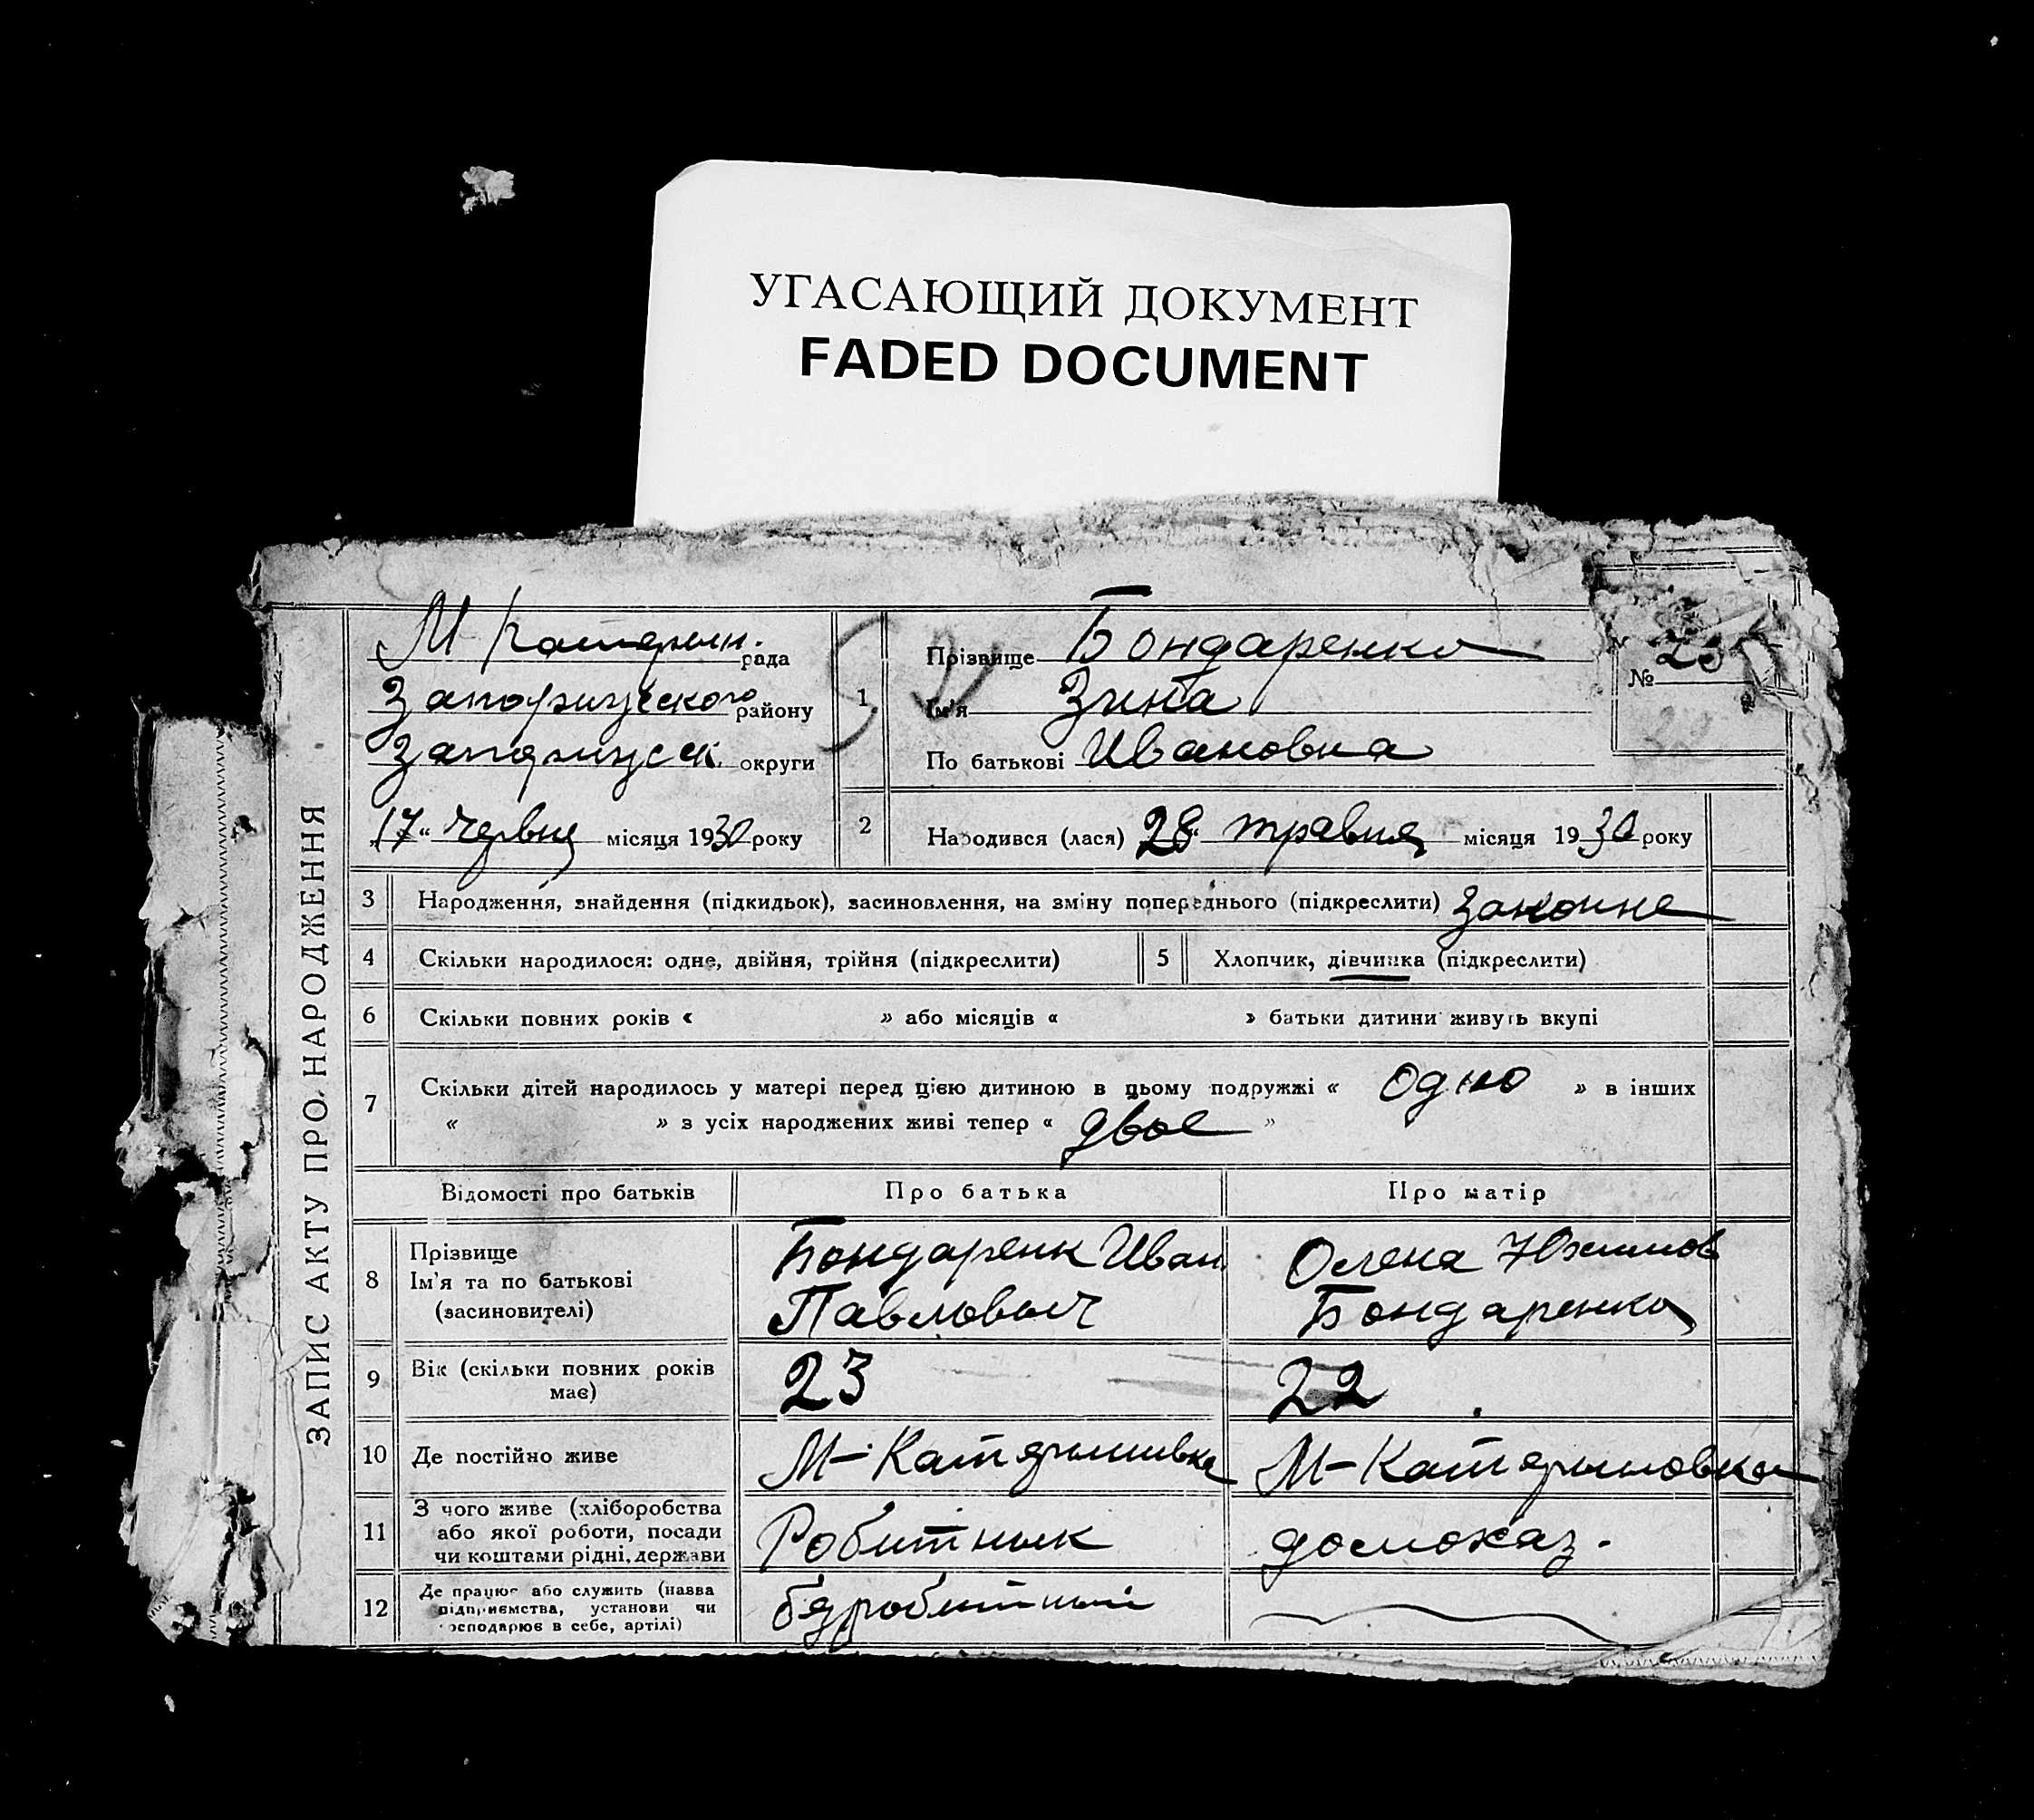 УГАСАЮЩИЙ ДОКУМЕНТ
FADED DOCUMENT
ЗАПИС АКТУ ПРО НАРОДЖЕННЯ
М Катерин. рада
Запоризького району
Запоризьк. округи
„17“ червня місяця 1930 року
1
Прізвище Бондаренко
Ім'я Зина
По батькові Ивановна
№ 23
2
Народився (лася) „28“ травня місяця 1930 року
3 Народження, знайдення (підкидьок), засиновлення, на зміну попереднього (підкреслити) законне
4 Скільки народилося: одне, двійня, трійня (підкреслити)
5 Хлопчик, дівчинка (підкреслити)
6 Скільки повних років « » або місяців « » батьки дитини живуть вкупі
7 Скільки дітей народилось у матері перед цією дитиною в цьому подружжі « одно » в інших
« » з усіх народжених живі тепер « двое »
Відомості про батьків Про батька Про матір
8 Прізвище
Ім'я та по батькові
(засиновителі)
Бондаренк Иван
Павлович
Олена Юхимов
Бондаренко
9 Вік (скільки повних років
має)
23
22
10 Де постійно живе М-Катериновка М-Катериновка
11 З чого живе (хліборобства
або якої роботи, посади
чи коштами рідні, держави
Робитнык
домохаз.
12 Де працює або служить (назва
підприємства, установи чи
господарює в себе, артілі)